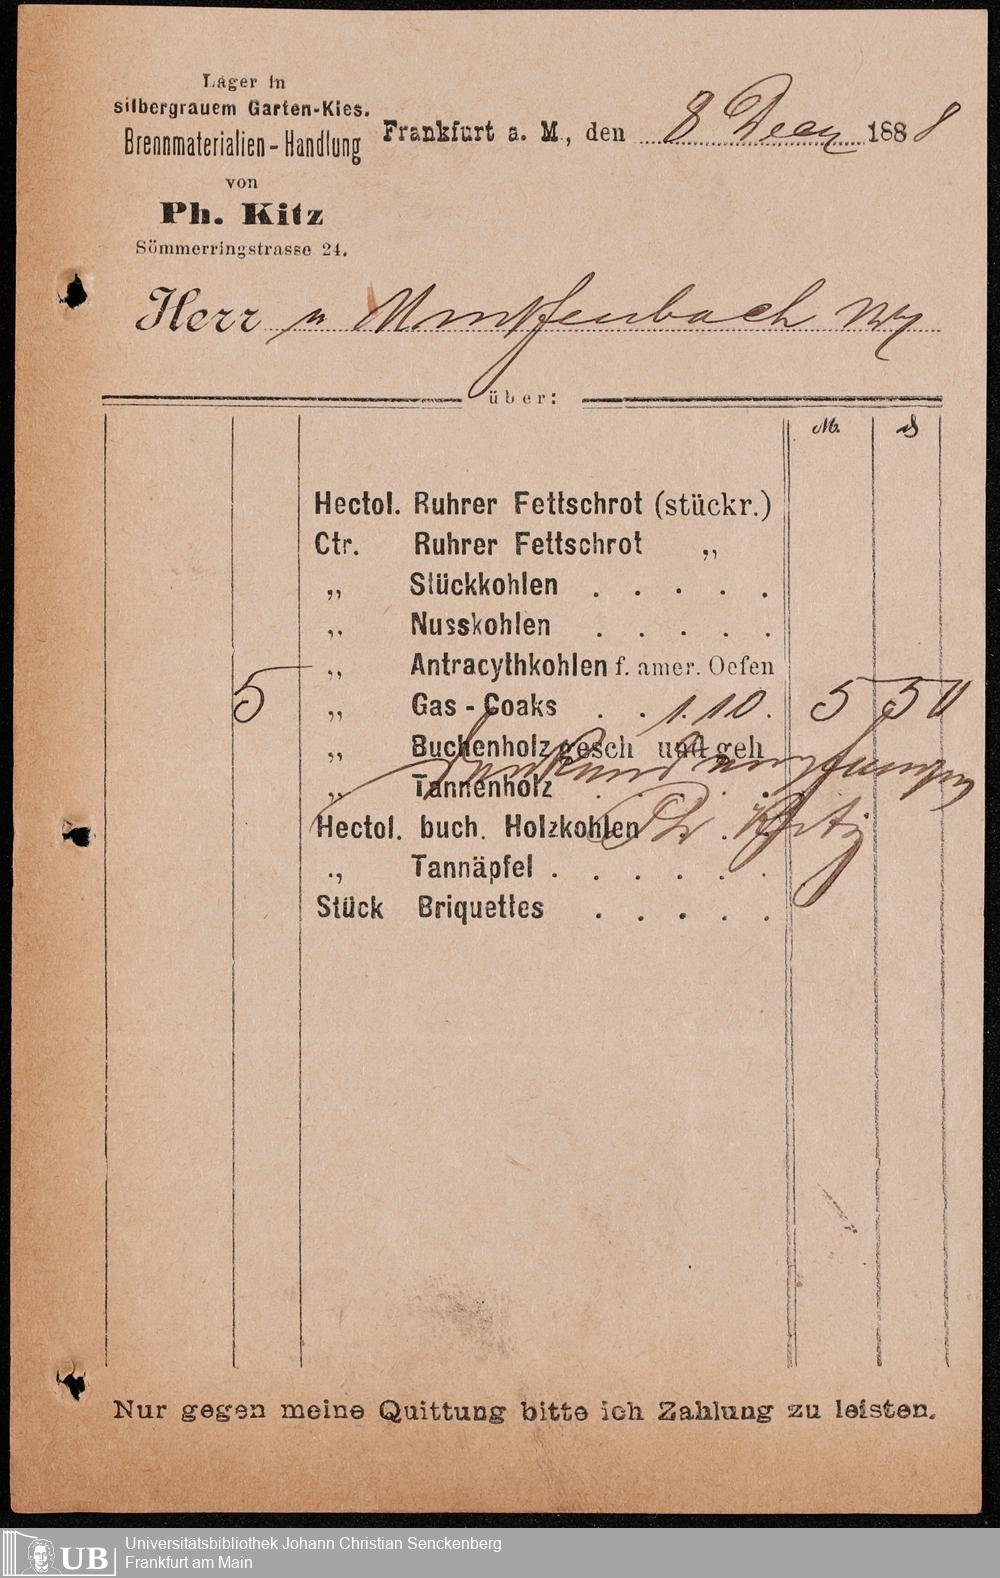 Lager in
silbergrauem Garten-Kies.
Brennmaterialien-Handlung
von
Ph. Kitz
Sömmerringstrasse 24.
Frankfurt a. M., den 8 Decz 1888
Herr
über:
M. ₰
Hectol. Ruhrer Fettschrot (stückr.)
Ctr. Ruhrer Fettschrot „
„ Stückkohlen . . . . .
„ Nusskohlen . . . . .
„ Antracythkohlen f. amer. Oefen
5 „ Gas-Coaks . . 1.10. 5 50
„ Buchenholz gesch und geh
„ Tannenholz
dankend empfangen
Hectol. buch. Holzkohlen
Ph. Kitz
„ Tannäpfel . . . . . .
Stück Briquettes . . . . .
Nur gegen meine Quittung bitte ich Zahlung zu leisten.
UB Universitätsbibliothek Johann Christian Senckenberg
Frankfurt am Main